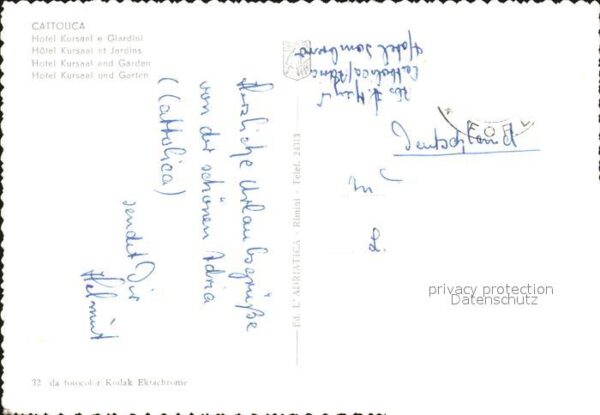 CATTOLICA
Hotel Kursaal e Giardini
Hôtel Kursaal et Jardins
Hotel Kursaal and Garden
Hotel Kursaal und Garten
Herzliche Urlaubsgrüße
von der schönen Adria
(Cattolica)
sendet Dir
Helmut
Ed. L'ADRIATICA - Rimini - Telef. 24313
Cattolica/Adria
Hotel
privacy protection
Datenschutz
32 da fotocolor Kodak Ektachrome